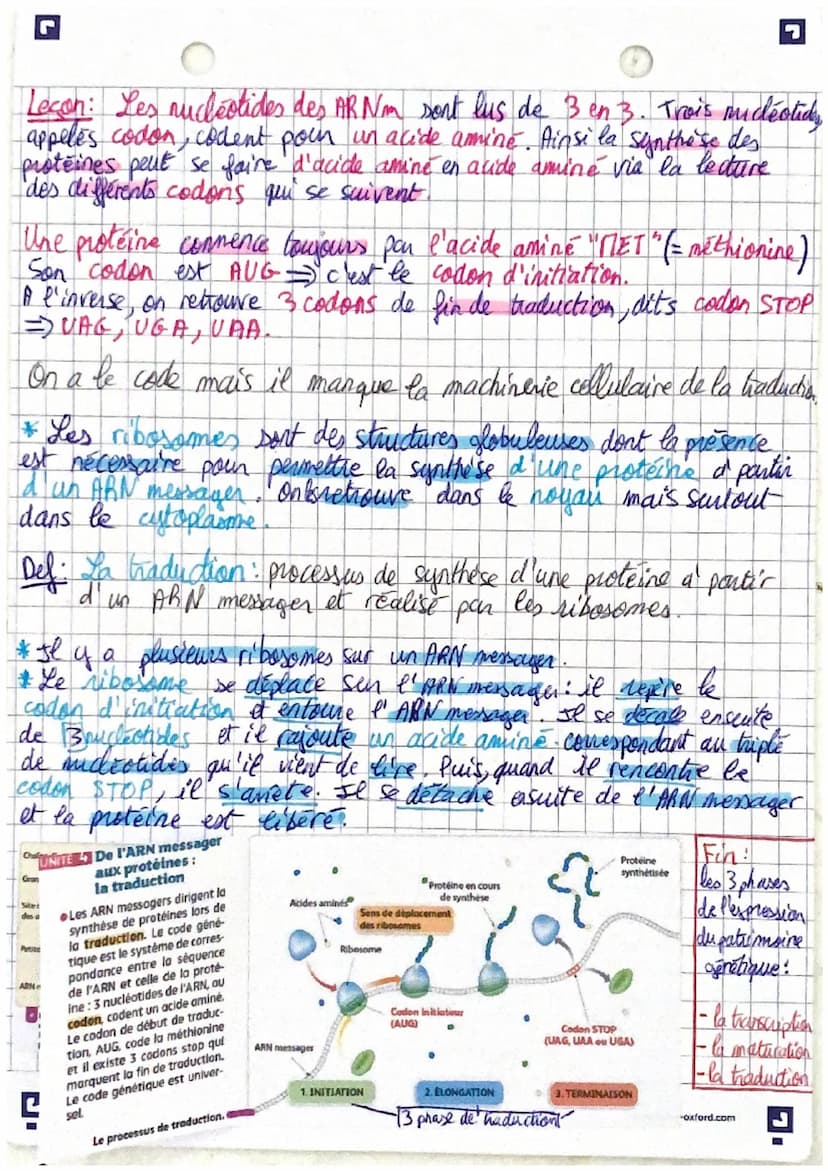 Leçon: Les nucléotides des ARNm sont lus de 3 en 3. Trois nucléotides,
appelés codon, codent pour un acide aminé. Ainsi la synthèse des
protéines peut se faire d'acide aminé en acide aminé via la lecture
des différents codons qui se suivent.
Une protéine commence toujours par l'acide aminé "MET" (= méthionine)
Son codon est AUG => c'est le codon d'initiation.
A l'inverse, on retrouve 3 codons de fin de traduction, dits codon STOP
=> UAG, UGA, UAA.
On a le code mais il manque la machinerie cellulaire de la traduction.
* Les ribosomes sont des structures globuleuses dont la présence
est nécessaire pour permettre la synthèse d'une protéine à partir
d'un ARN messager. On les retrouve dans le noyau mais surtout
dans le cytoplasme.
Def: La traduction: processus de synthèse d'une protéine à partir
d'un ARN messager et réalisé par les ribosomes.
* Il y a plusieurs ribosomes sur un ARN messager.
* Le ribosome se déplace sur l'ARN messager: il repère le
codon d'initiation et entoure l'ARN messager. Il se décale ensuite
de 3 nucléotides et il rajoute un acide aminé correspondant au triplé
de nucléotides qu'il vient de lire. Puis, quand il rencontre le
codon STOP, il s'arrête. Il se détache ensuite de l'ARN messager
et la protéine est libéré.
UNITÉ 4 De l'ARN messager
aux protéines :
la traduction
Les ARN messagers dirigent la
synthèse de protéines lors de
la traduction. Le code géné-
tique est le système de corres-
pondance entre la séquence
de l'ARN et celle de la proté-
ine : 3 nucléotides de l'ARN, ou
codon, codent un acide aminé.
Le codon de début de traduc-
tion, AUG, code la méthionine
et il existe 3 codons stop qui
marquent la fin de traduction.
Le code génétique est univer-
sel.
Le processus de traduction.
Acides aminés
Protéine en cours
de synthèse
Protéine
synthétisée
Sens de déplacement
des ribosomes
Ribosome
Codon initiateur
(AUG)
Codon STOP
(UAG, UAA ou UGA)
ARN messager
1. INITIATION
2. ÉLONGATION
3. TERMINAISON
3 phase de traduction
Fin:
les 3 phases
de l'expression
du patrimoine
génétique:
- la transcription
- la maturation
- la traduction
oxford.com